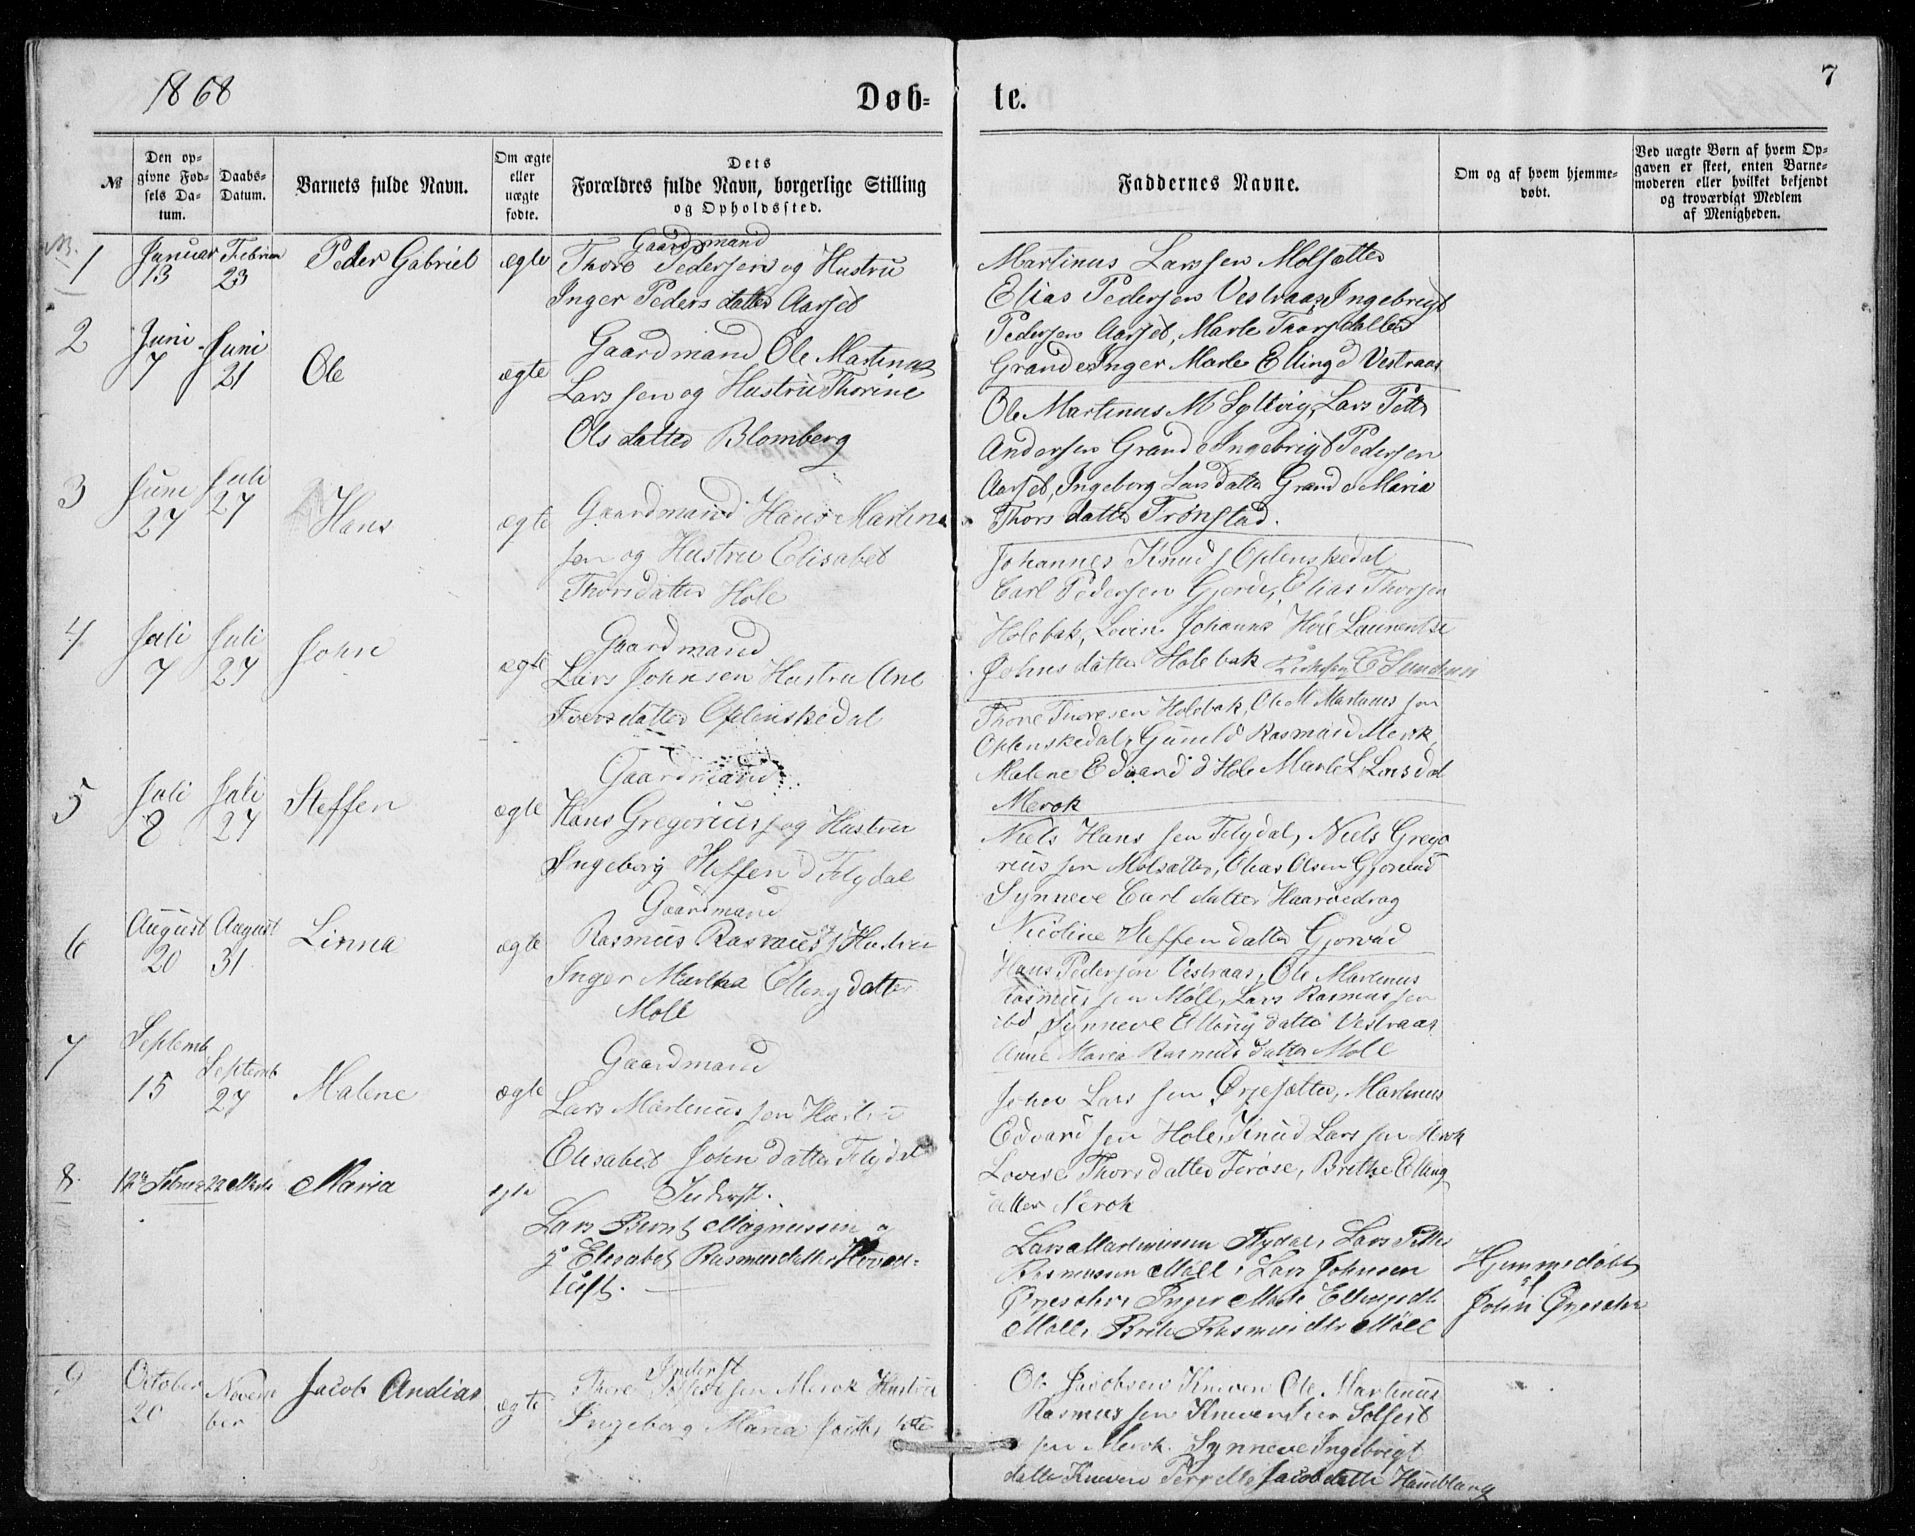 1868
Døb-
te.
7
№
Den op-
givne Fød-
sels Da-
tum.
Daabs-
Datum.
Barnets fulde Navn.
Om ægte
eller
uægte
fødte.
Dets
Forældres fulde Navn, borgerlige Stilling
og Opholdssted.
Faddernes Navne.
Om og af hvem hjemme-
døbt.
Ved uægte Børn af hvem Op-
gaven er skeet, enten Barne-
moderen eller hvilket bekjendt
og troværdigt Medlem
af Menigheden.
1
Januar
13
23
Peder Gabriel
ægte
Gaardmand
Thore Pedersen og Hustru
Inger Peders datter Aarset
Martinus Larssen Molsætter
Elias Pedersen Vestraas, Ingebrigt
Pedersen Aarset, Marte Thorsdatter
Grande Inger Marte Elling d Vestraas
2
Juni
7
Juni
21
Ole
ægte
Gaardmand Ole Martinus
Larssen og Hustru Thorine
Ols datter Blomberg
Ole Martinus M Syltvig, Lars Pett
Andersen Grande Ingebrigt Pedersen
Aarset, Ingeborg Larsdatter Grande Maria
Thors datter Trønstad.
3
Juni
27
Juli
27
Hans
ægte
Gaardmand Hans Martinu
sen og Hustru Elisabet
Thorsdatter Hole
Johannes Knuds Oplenskedal
Carl Pedersen Gjerde, Elias Thorsen
Holebak, Johanne Hole Laurentse
Johns datter Holebak
4
Juli
7
Juli
27
John
ægte
Gaardmand
Lars Johnsen Hustru Ane
Iversdatter Oplenskedal
Thore Thoresen Holebak, Ole M Martinus sen
Oplenskedal, Gunild Rasmusd Merok
Malene Edvard d Hole Marte L Larsdat
Merok
5
Juli
8
Juli
27
Steffen
ægte
Gaardmand
Hans Gregorius s og Hustru
Ingeborg Steffen d Flydal
Niels Hans sen Flydal, Niels Grego
rius sen Molsætter, Elias Olsen Gjørvad
Synneve Carl datter Haarvedrag
Nicoline Steffen datter Gjørvad
6
August
20
August
31
Linna
ægte
Gaardmand
Rasmus Rasmus s Hustru
Inger Martha Elling datter
Moll
Hans Pedersen Vestraas, Ole Martinus
Rasmus sen Møll, Lars Rasmus sen
ibd Synneve Elling datter Vestraas
Anne Maria Rasmus datter Moll
7
Septemb
15
Septemb
27
Malene
ægte
Gaardmand
Lars Martinus sen Hustru
Elisabet John datter Flydal
John Lars sen Ørjesætter, Martinus
Edvard sen Hole, Knud Lars sen Merok
Lovise Thorsdatter Berthe Elling
datter Merok
8
Maria
ægte
Inderst.
Lars Bernt Magnussen o
g Elisabet Rasmusdatter
Lars Martinussen Flydal, Lars Petter
Rasmussen Møll, Lars Johnsen
Ørjesæter, Inger Marte Ellingsdt
Møll, Brite Rasmusdtr Møll
Hjemmedøbt
af
John Ørjesæter
9
October
20
Novem
ber
Jacob Andias
ægte
Inderst
Thore sen Merok Hustru
Ingeborg Maria
Ole Jacobsen Kneven Ole Martinus
Rasmus sen Solfest
sen Merok. Synneve Ingebrigt
datter Kneven Jacobdatter